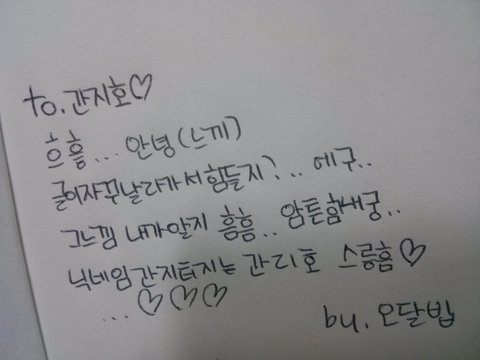 to. 간지호♡
흐흠... 안녕(느끼)
글이자꾸날라가서힘들지?.. 에구..
그느낌 내가알지 흠흠.. 암튼힘내궁..
닉네임간지터지는 간지호 스릉흠♡
... ♡♡♡
by. 오달밥